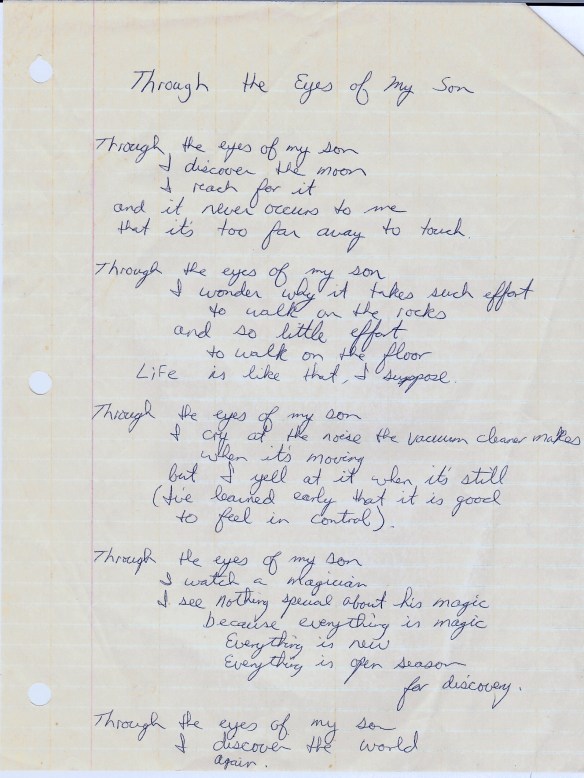 Through the Eyes of My Son
Through the eyes of my son
I discover the moon
I reach for it
and it never occurs to me
that it's too far away to touch.
Through the eyes of my son
I wonder why it takes such effort
to walk on the rocks
and so little effort
to walk on the floor
Life is like that, I suppose.
Through the eyes of my son
I cry at the noise the vacuum cleaner makes
when it's moving
but I yell at it when it's still
(I've learned early that it is good
to feel in control).
Through the eyes of my son
I watch a magician
I see nothing special about his magic
because everything is magic
Everything is new
Everything is open season
for discovery.
Through the eyes of my son
I discover the world
again.